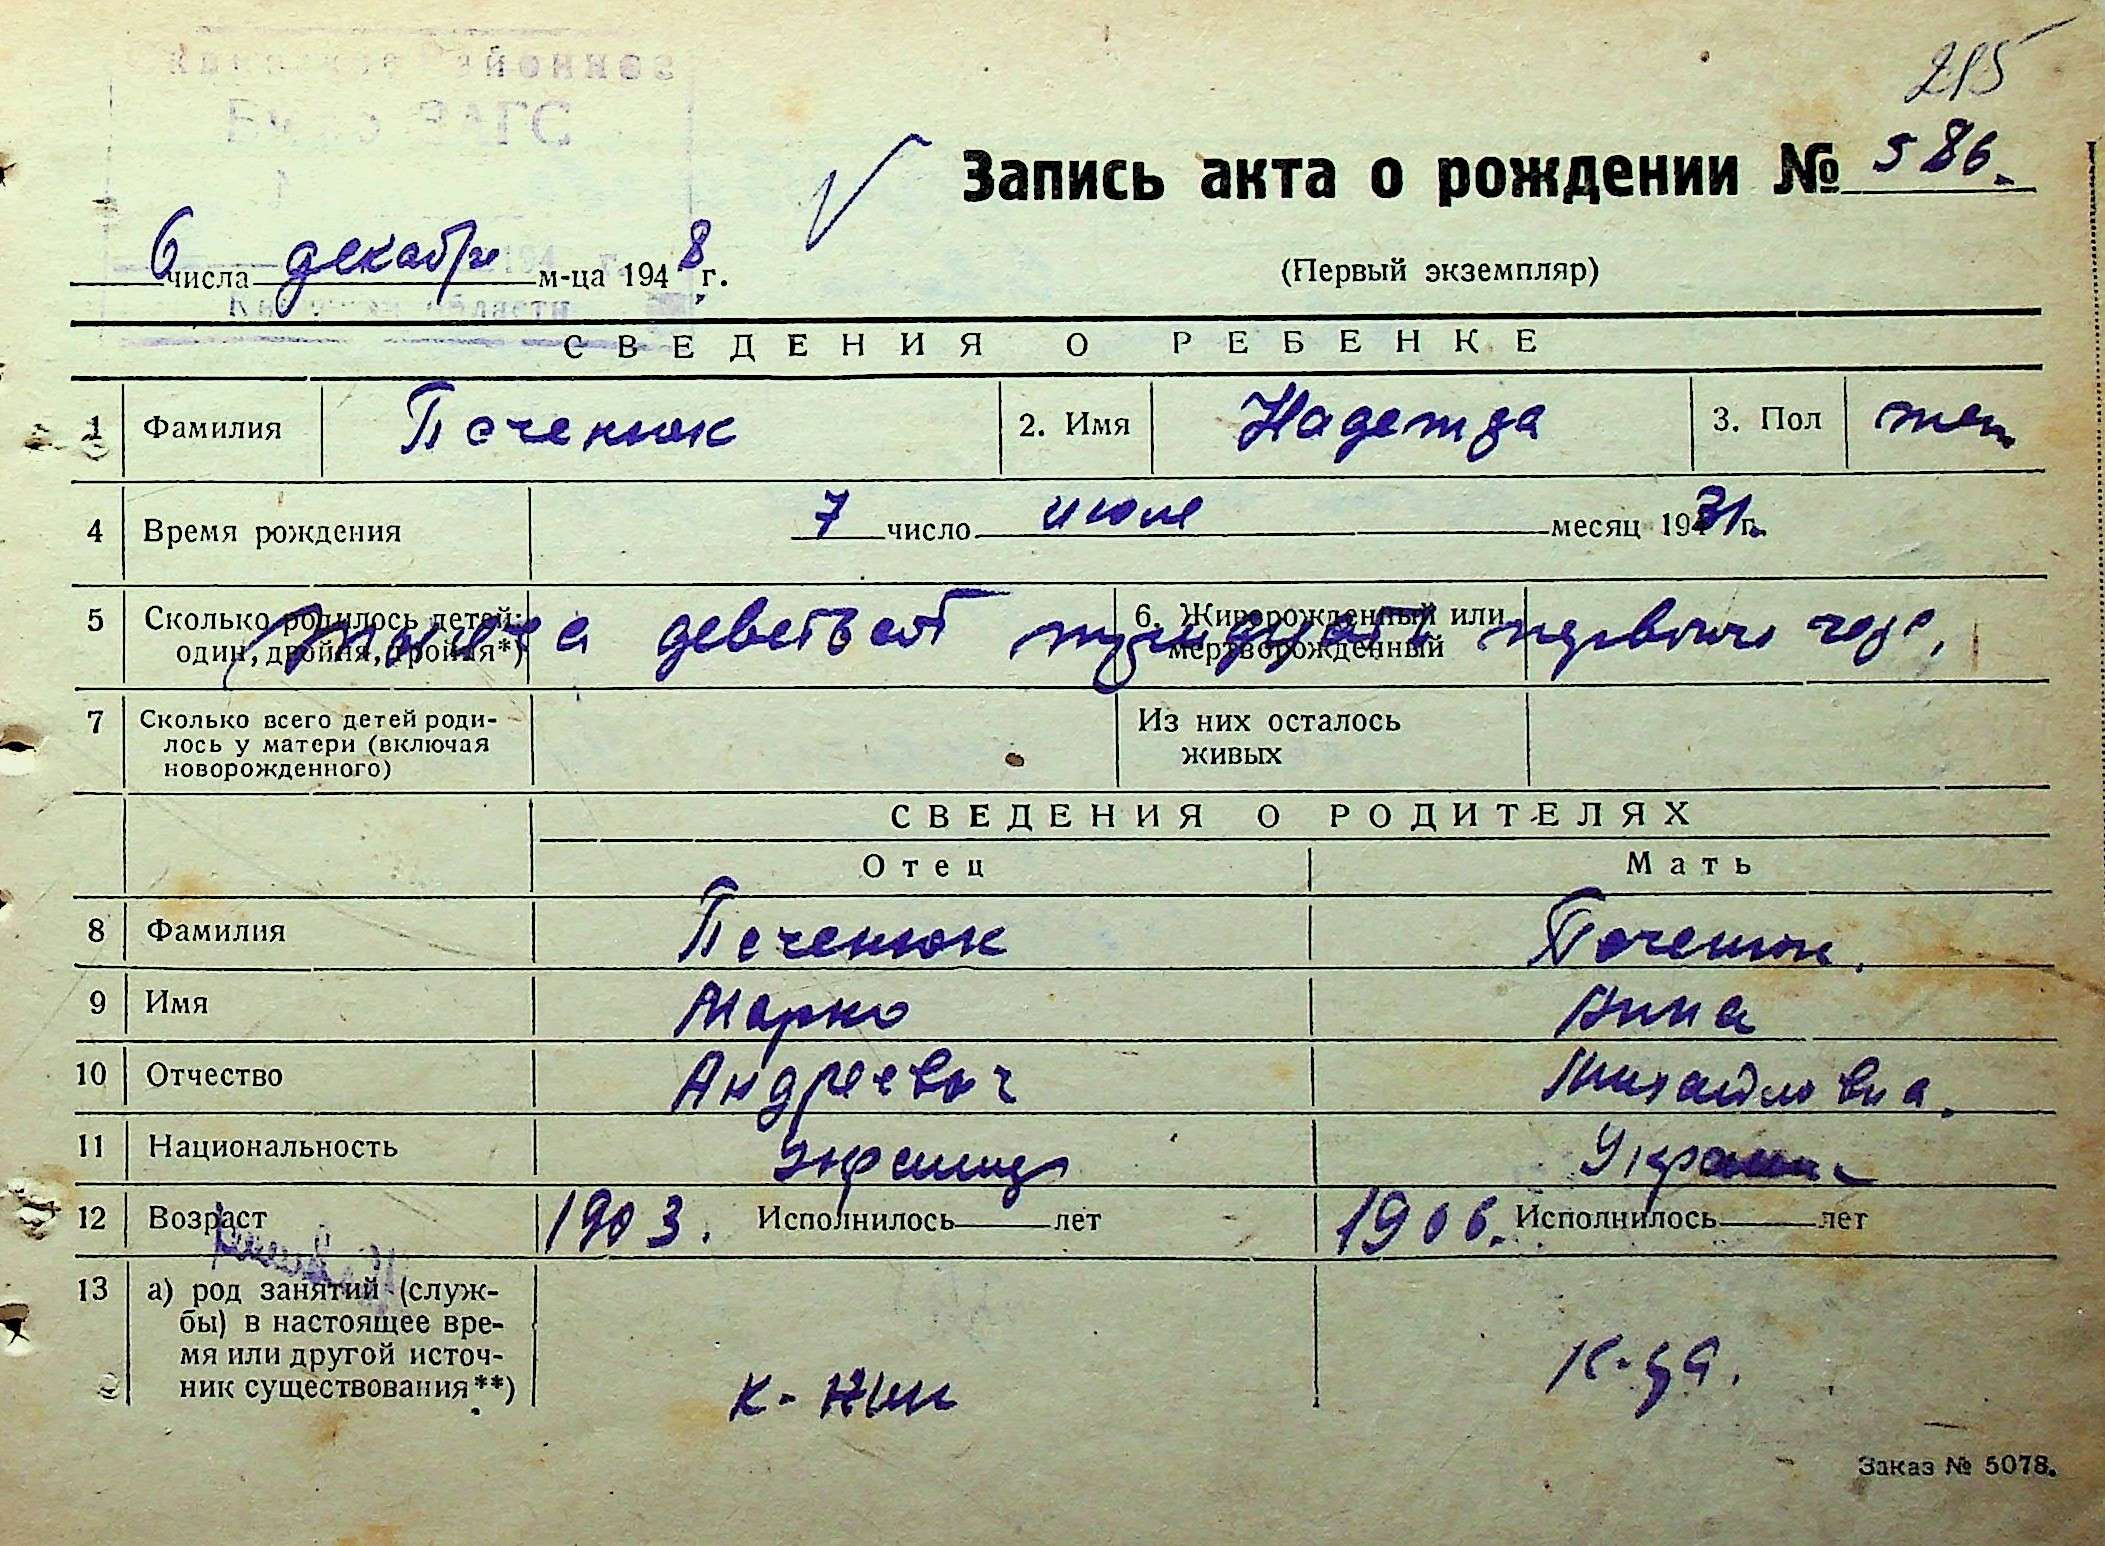 215
Запись акта о рождении № 586.
6 числа декабря м-ца 1948 г.
(Первый экземпляр)
СВЕДЕНИЯ О РЕБЕНКЕ
1 Фамилия Печенюк 2. Имя Надежда 3. Пол жен
4 Время рождения 7 число июля месяц 1931 г.
5 Сколько родилось детей: один, двойня, тройня*) 6. Живорожденный или мертворожденный
тысяча девятьсот тридцать первого года,
7 Сколько всего детей роди-
лось у матери (включая
новорожденного)
Из них осталось
живых
СВЕДЕНИЯ О РОДИТЕЛЯХ
Отец Мать
8 Фамилия Печенюк Печенюк.
9 Имя Марко Анна
10 Отчество Андреевич Михайловна.
11 Национальность Украинец Украинка
12 Возраст 1903. Исполнилось лет 1906. Исполнилось лет
13 а) род занятий (служ-
бы) в настоящее вре-
мя или другой источ-
ник существования**)
к-ник к-ца.
Заказ № 5078.